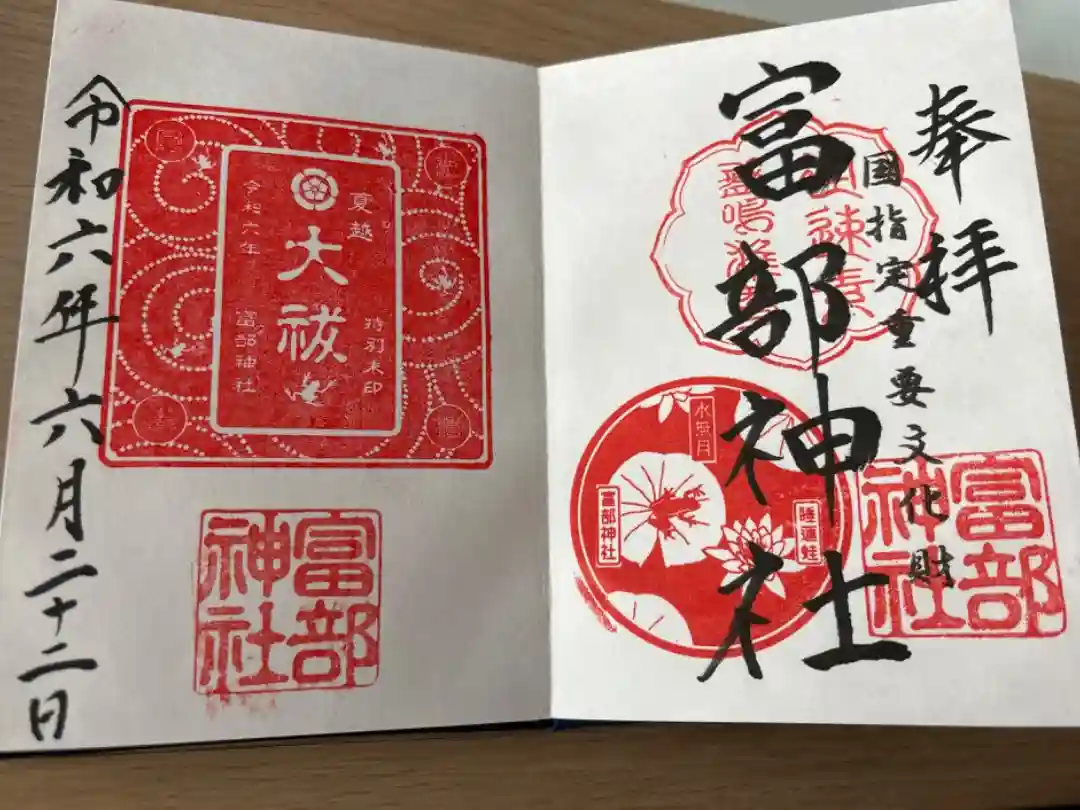 奉拝
国指定重要文化財
富部神社
水無月
富部神社
睡蓮蛙
富部神社
夏越
大祓
令和六年
特別朱印
富部神社
富部神社
令和六年六月二十二日